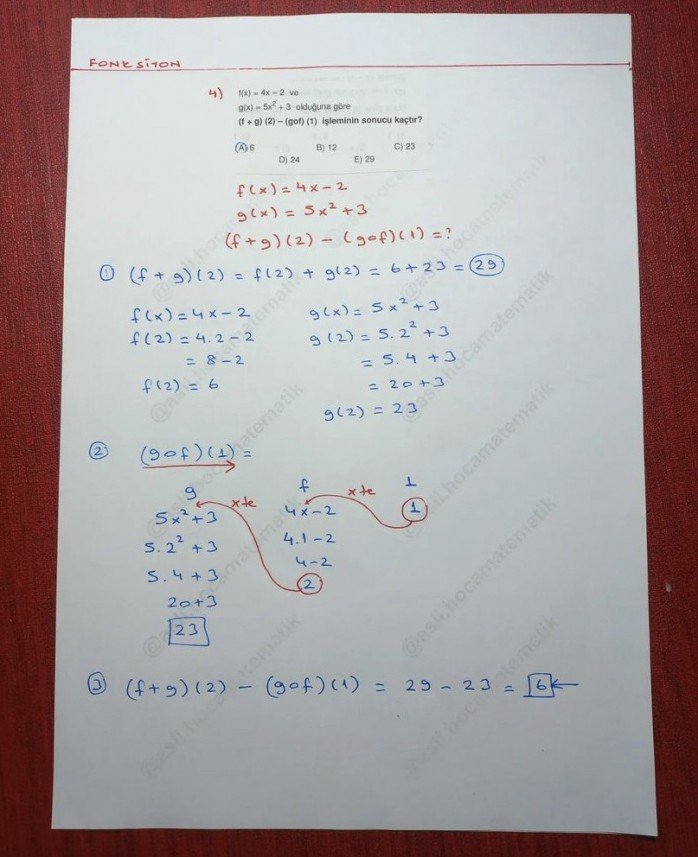 FONKSİYON
4) f(x) = 4x – 2 ve
g(x) = 5x² + 3 olduğuna göre
(f + g) (2) – (gof) (1) işleminin sonucu kaçtır?
A) 6 B) 12 C) 23
D) 24 E) 29
f(x) = 4x - 2
g(x) = 5x² + 3
(f + g)(2) - (gof)(1) = ?
① (f + g)(2) = f(2) + g(2) = 6 + 23 = 29
f(x) = 4x - 2 g(x) = 5x² + 3
f(2) = 4.2 - 2 g(2) = 5.2² + 3
= 8 - 2 = 5.4 + 3
f(2) = 6 = 20 + 3
g(2) = 23
② (gof)(1) =
g f 1
x te x te
5x² + 3 4x - 2 1
5.2² + 3 4.1 - 2
5.4 + 3 4 - 2
20 + 3 2
23
③ (f + g)(2) - (gof)(1) = 29 - 23 = 6
@asli.hocamatematik